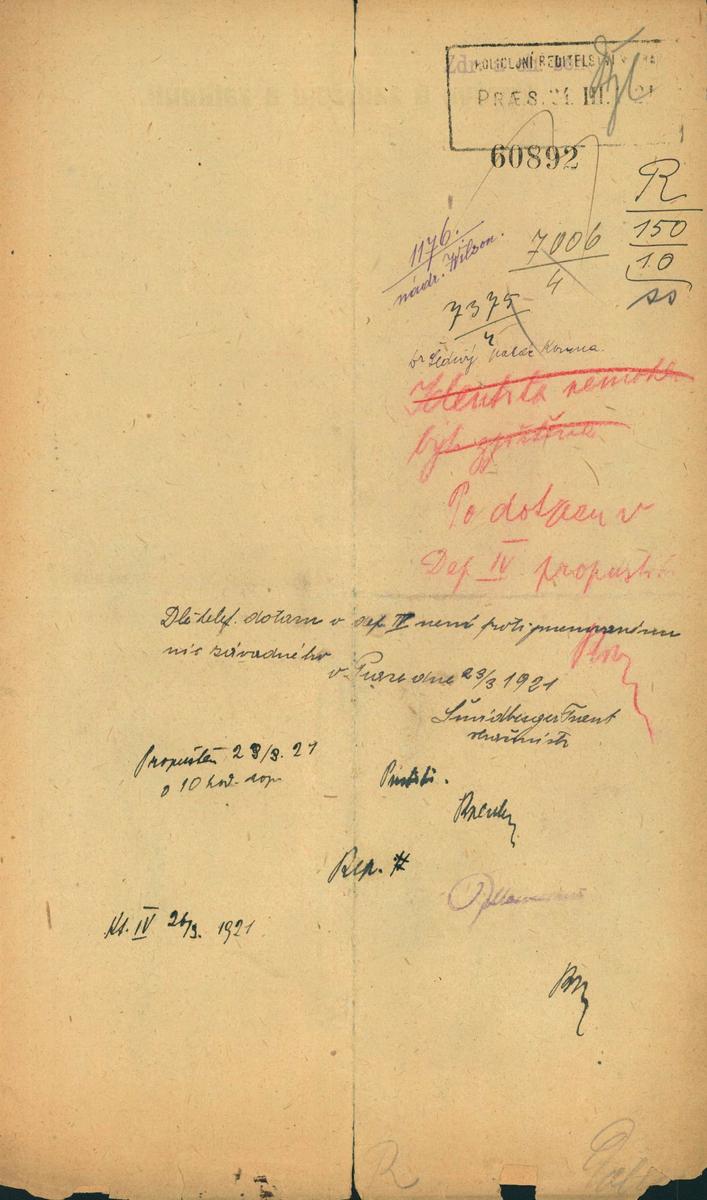 POLICEJNÍ ŘEDITELSTVÍ V PRAZE
PRÆS. 24. III. 21
60892
R
150
10
1176.
nádr. Wilson.
7006
4
7375
4
Dr Šedivý palác Koruna.
Identita nemohla
být zjištěna
Po dotazu v
Dep. IV propustiti
Dle telef. dotazu v dep. IV není proti jmenovanému
nic závadného
v Praze dne 23/3 1921
Propuštěn 23/3. 21
o 10 hod. dop.
Rep. II
Kt. IV 26/3. 1921
R